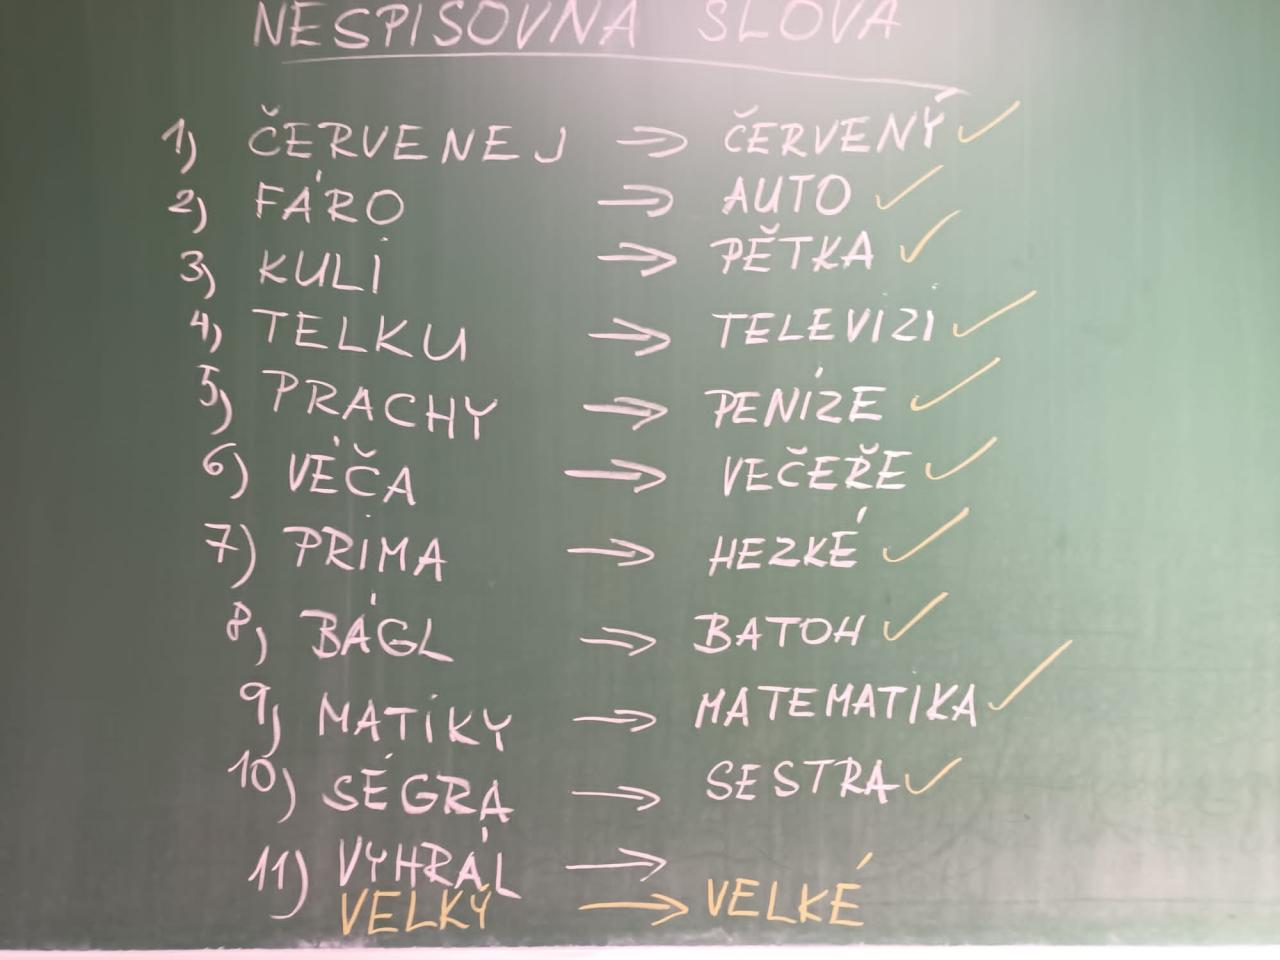 NESPISOVNÁ SLOVA
1) ČERVENEJ → ČERVENÝ ✓
2) FÁRO → AUTO ✓
3) KULI → PĚTKA ✓
4) TELKU → TELEVIZI ✓
5) PRACHY → PENÍZE ✓
6) VÉČA → VEČEŘE ✓
7) PRIMA → HEZKÉ ✓
8) BÁGL → BATOH ✓
9) MATIKY → MATEMATIKA ✓
10) SÉGRA → SESTRA ✓
11) VYHRÁL →
VELKÝ → VELKÉ